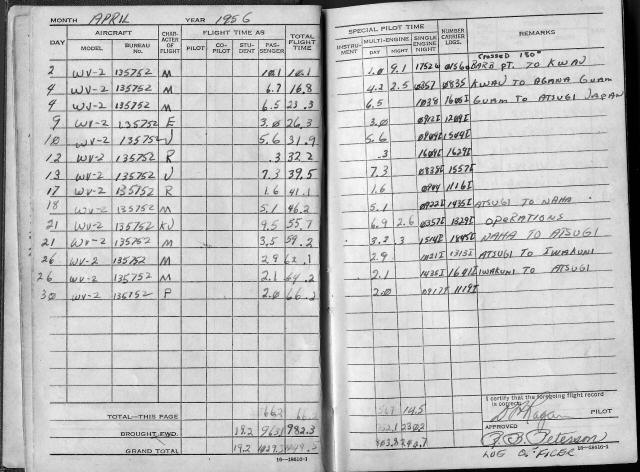 MONTH APRIL YEAR 1956
DAY AIRCRAFT CHARACTER OF FLIGHT FLIGHT TIME AS TOTAL FLIGHT TIME
MODEL BUREAU NO. PILOT CO-PILOT STUDENT PASSENGER
2 WV-2 135752 M 10.1 10.1
4 WV-2 135752 M 6.7 16.8
9 WV-2 135752 M 6.5 23.3
9 WV-2 135752 E 3.0 26.3
10 WV-2 135752 U 5.6 31.9
12 WV-2 135752 R .3 32.2
13 WV-2 135752 U 7.3 39.5
17 WV-2 135752 R 1.6 41.1
18 WV-2 135752 M 5.1 46.2
21 WV-2 135752 KU 9.5 55.7
21 WV-2 135752 M 3.5 59.2
26 WV-2 135752 M 2.9 62.1
26 WV-2 135752 M 2.1 64.2
30 WV-2 135752 P 2.0 66.2
TOTAL—THIS PAGE 66.2 66.2
BROUGHT FWD. 19.2 963.1 982.3
GRAND TOTAL 19.2
16—18610-1
SPECIAL PILOT TIME NUMBER CARRIER LDGS. REMARKS
INSTRUMENT MULTI-ENGINE SINGLE ENGINE NIGHT
DAY NIGHT
Crossed 180°
1.0 9.1 PT. TO KWAJ
4.2 2.5 0357 0835 KWAJ TO AGANA GUAM
6.5 1038 1605I GUAM TO ATSUGI JAPAN
3.0 1209I
5.6 1544I
.3 1609I 1629I
7.3 0838I 1557I
1.6 1116I
5.1 0922I 1435I ATSUGI TO NAHA
6.9 2.6 0357I 1329I OPERATIONS
3.2 .3 1514I 1845I NAHA TO ATSUGI
2.9 1021I 1313I ATSUGI TO IWAKUNI
2.1 1435I 1641I IWAKUNI TO ATSUGI
2.0 0917I 1119I
14.5
I certify that the foregoing flight record is correct.
PILOT
APPROVED
Peterson
LOG OFFICER
16—18610-1